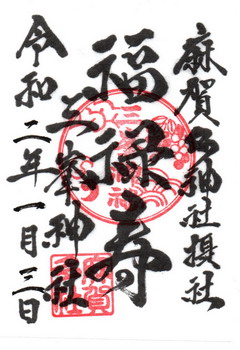 麻賀多神社摂社
福禄寿
三峯神社
令和二年一月三日